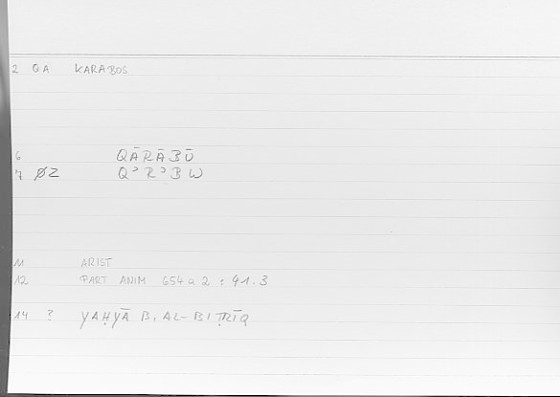 2 QA KARABOS
6 QĀRĀBŪ
7 ØZ QʾRʾBW
11 ARIST
12 PART ANIM 654a2 : 41.3
14 ? YAḤYĀ B. AL-BIṬRĪQ